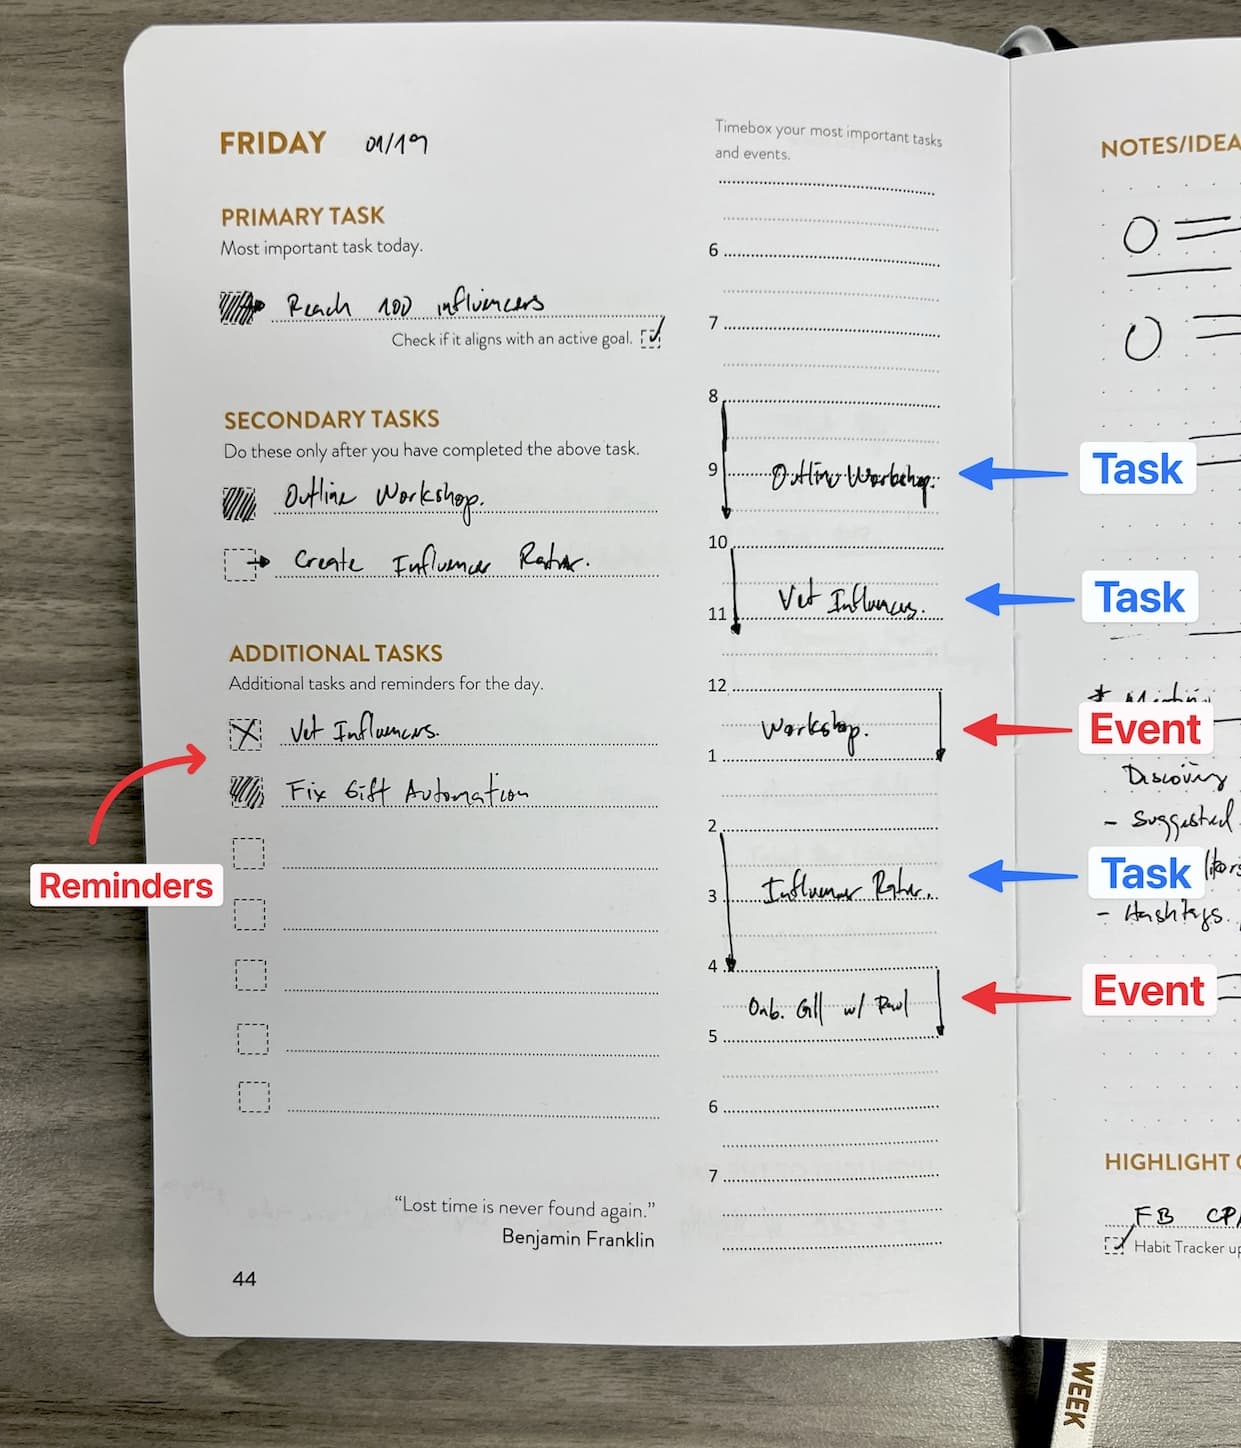 FRIDAY 01/19
PRIMARY TASK
Most important task today.
Reach 100 influencers
Check if it aligns with an active goal.
SECONDARY TASKS
Do these only after you have completed the above task.
Outline Workshop.
Create Influencer Rater.
ADDITIONAL TASKS
Additional tasks and reminders for the day.
Vet Influencers.
Fix Gift Automation
Reminders
"Lost time is never found again."
Benjamin Franklin
44
Timebox your most important tasks
and events.
6
7
8
9 Outline Workshop.
10
Vet Influencers.
11
12
Workshop.
1
2
3 Influencer Rater.
4
Onb. Call w/
5
6
7
Task
Task
Event
Task
Event
NOTES/IDEA
Discovery
- Suggested
- Hashtags.
HIGHLIGHT
FB
Habit Tracker up
WEEK